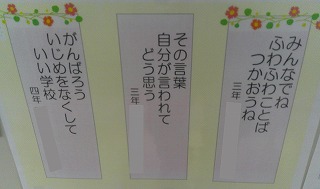 みんなでね
ふわふわことば
つかおうね
三年
その言葉
自分が言われて
どう思う
三年
がんばろう
いじめをなくして
いい学校
四年